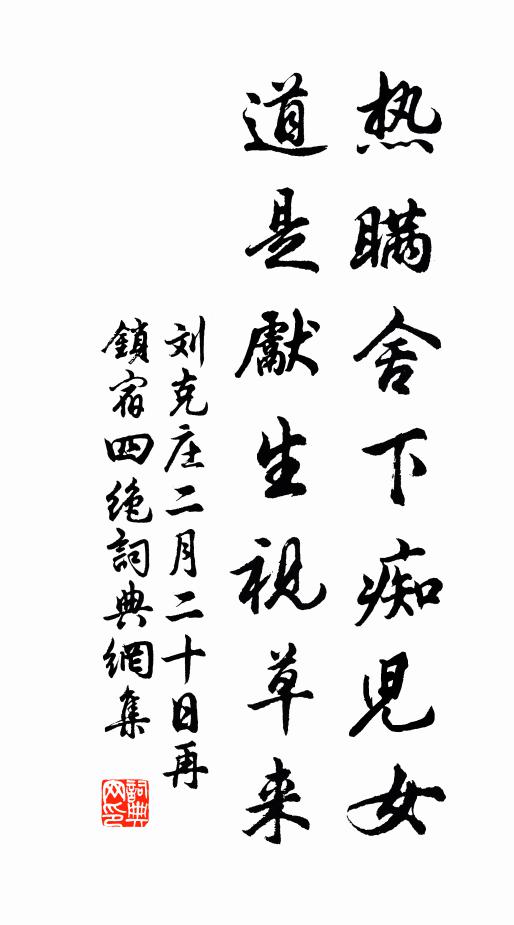 热瞒舍下痴児女
道是獻生視草来
刘克庄二月二十日再
鎖宿四绝詞典網集
詞典网印